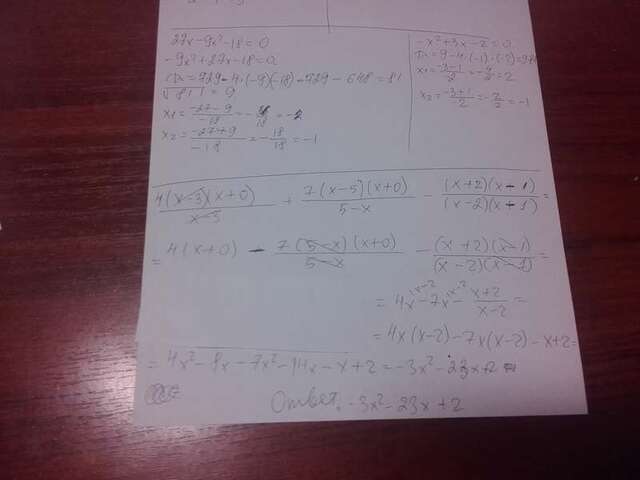 27x-9x²-18=0
-9x²+27x-18=0
D=729-4·(-9)(-18)=729-648=81
√81=9
x₁=(-27-9)/-18=
x₂=(-27+9)/-18=-18/18=-1
-x²+3x-2=0
D=9-4·(-1)·(-2)=9
x₁=(-3-1)/2=-4/2=2
x₂=(-3+1)/-2=-2/2=-1
4(x-3)(x+0)/x-3 + 7(x-5)(x+0)/5-x - (x+2)(x-1)/(x-2)(x+1)=
=4(x+0) - 7(5-x)(x+0)/5-x - (x+2)(x-1)/(x-2)(x-1)=
=4x^x-2-7x^x-2-x+2/x-2=
=4x(x-2)-7x(x-2)-x+2=
=4x²-8x-7x²-14x-x+2=-3x²-23x+2
Ответ: -3x²-23x+2